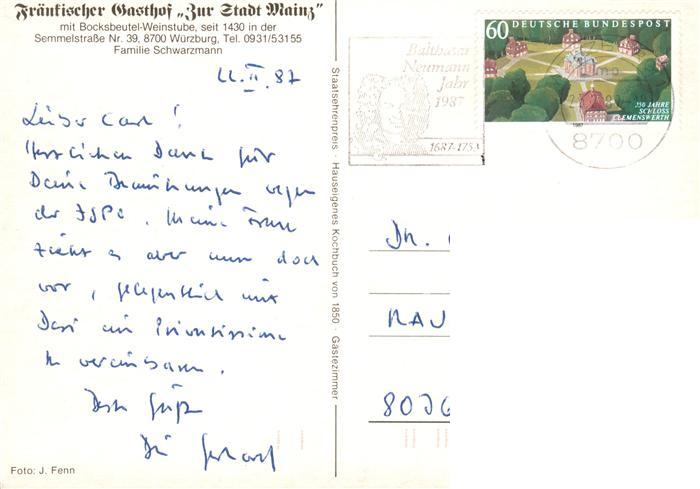 Fränkischer Gasthof „Zur Stadt Mainz"
mit Bocksbeutel-Weinstube, seit 1430 in der
Semmelstraße Nr. 39, 8700 Würzburg, Tel. 0931/53155
Familie Schwarzmann
22.II.87
Lieber Carl!
Herzlichen Dank für
Deine Bemühungen wegen
der JSPC. Meine Frau
zieht es aber nun doch
vor, gelegentlich mit
Dir ein Privatissime
zu vereinbaren.
Beste Grüße
Dein Gerhard
Foto: J. Fenn
Staatsehrenpreis · Hauseigenes Kochbuch von 1850 · Gästezimmer
Balthasar
Neumann
Jahr
1987
1687-1753
60 DEUTSCHE BUNDESPOST
250 JAHRE
SCHLOSS
CLEMENSWERTH
1987
8700
DR.
RAU
8036